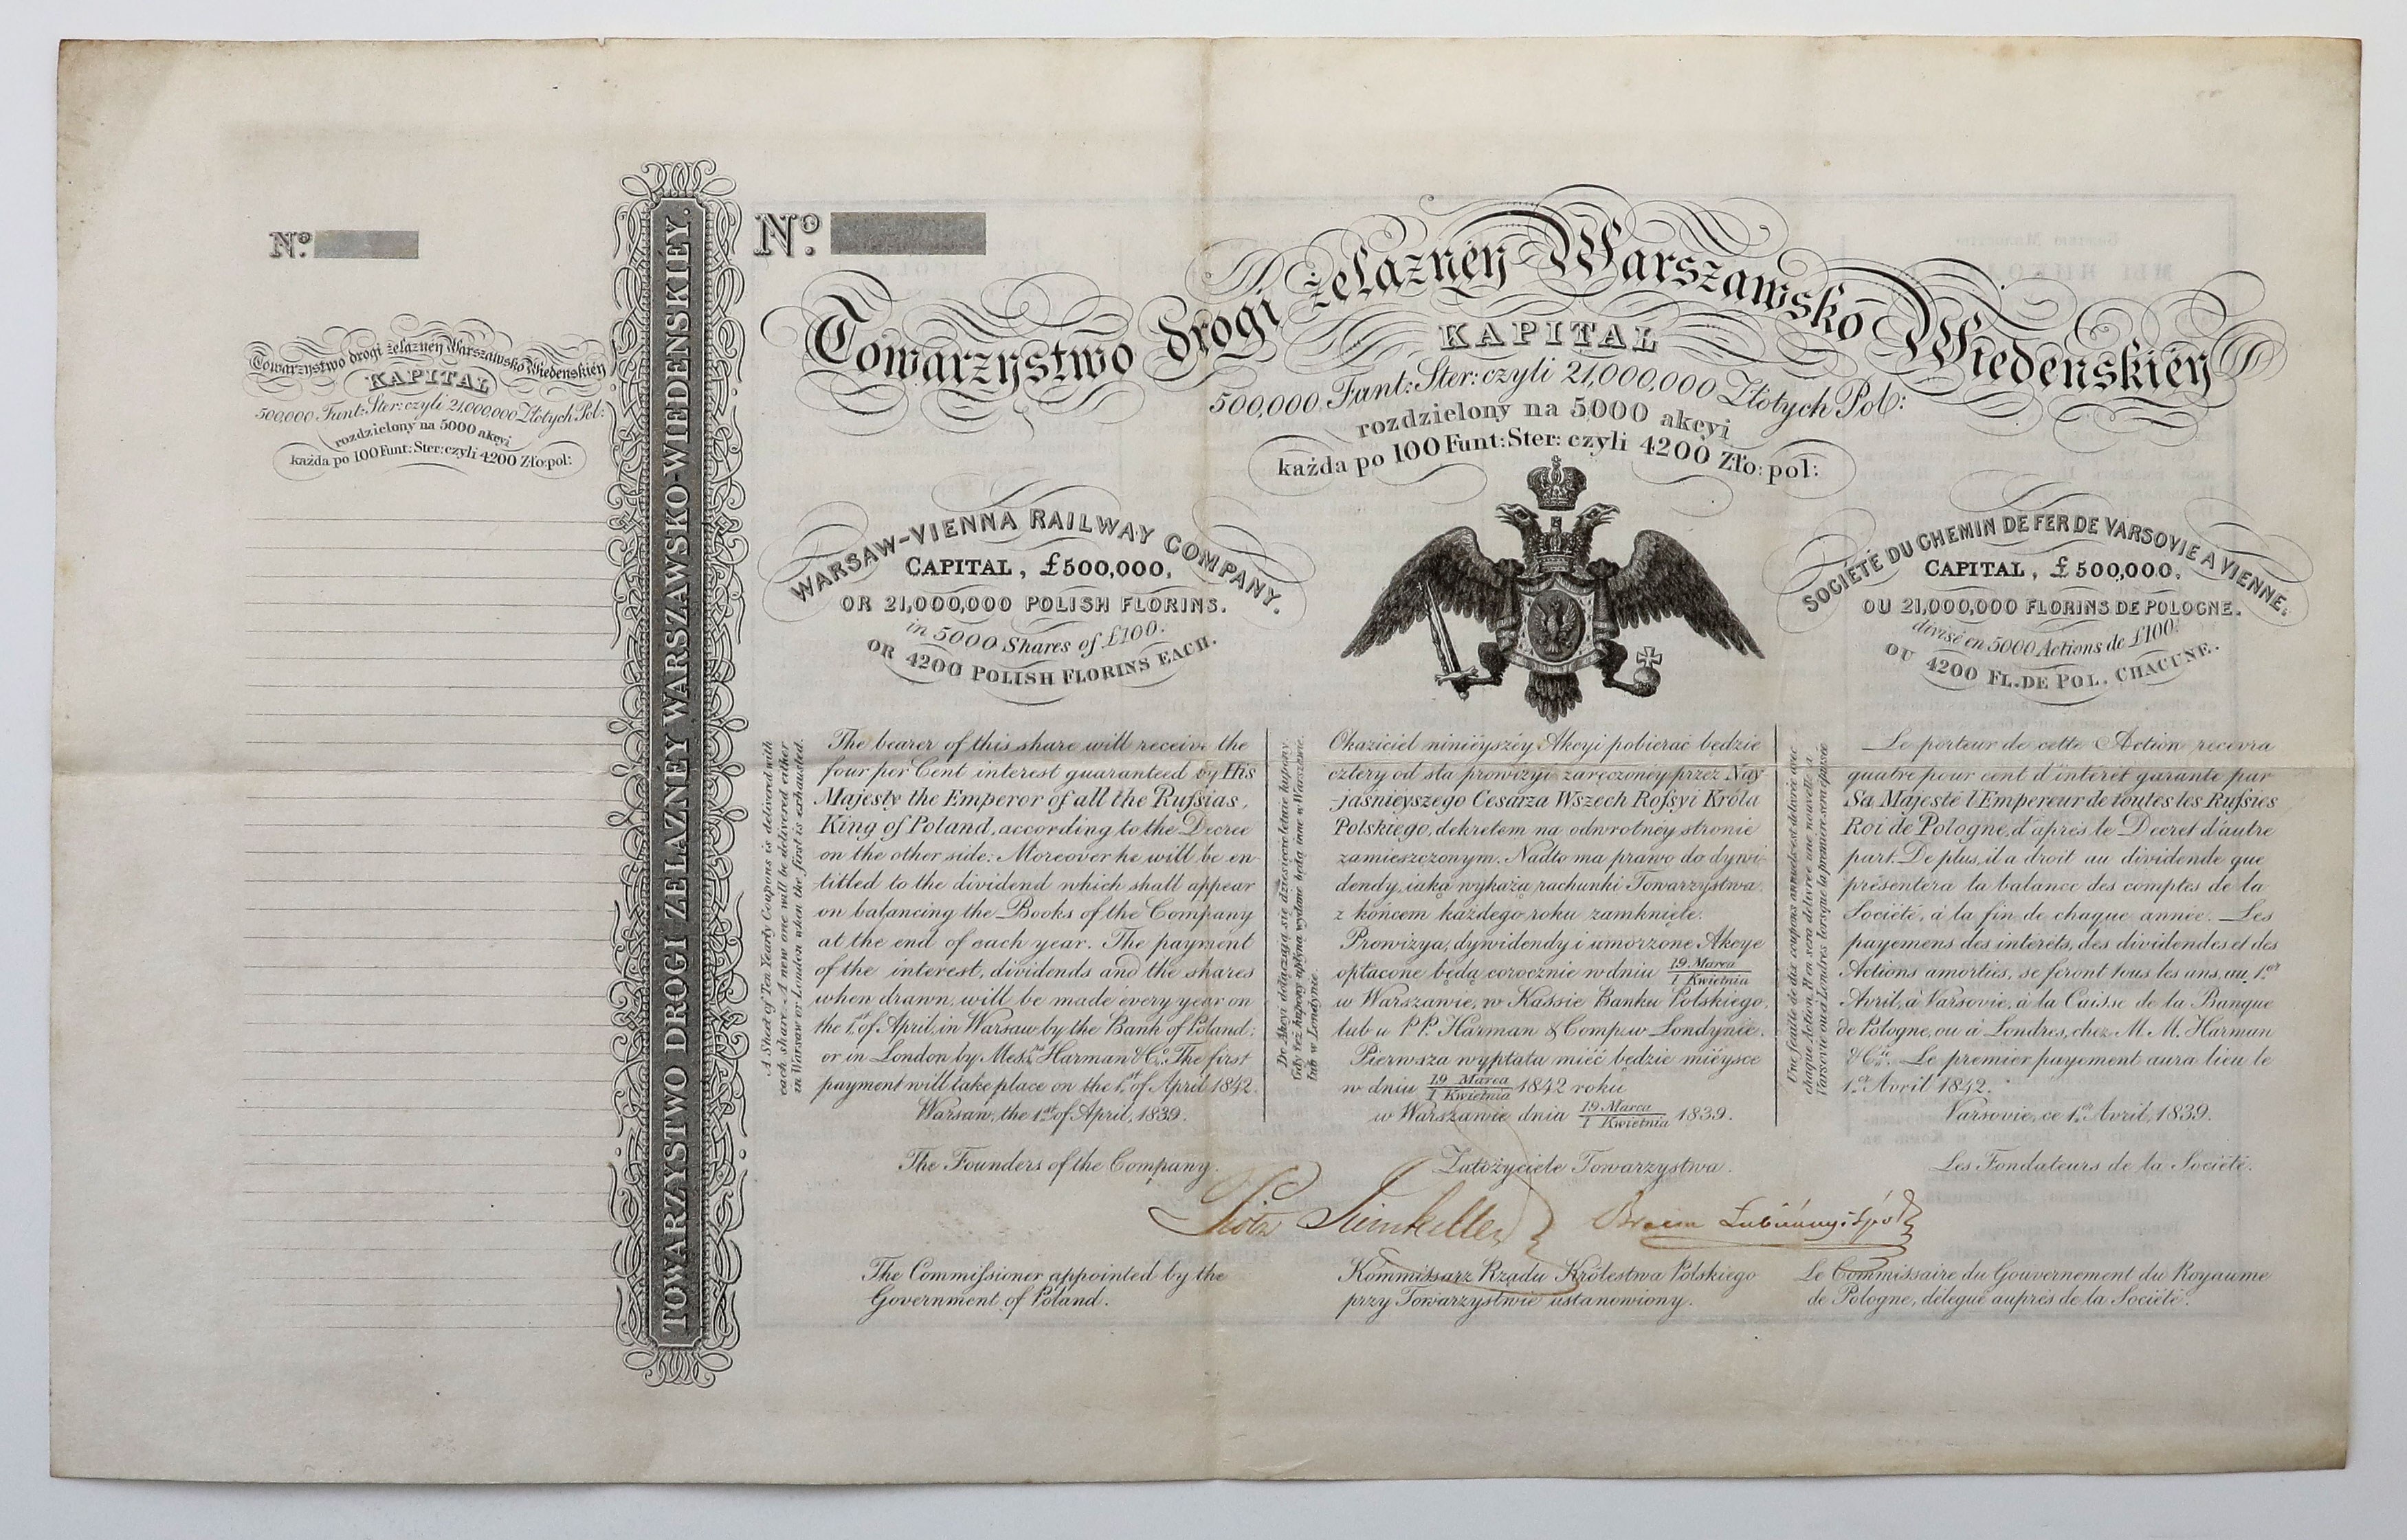 Nº
Towarzystwo drogi żelaznéy Warszawsko Wiedenskiéy
KAPITAL
500,000 Funt: Ster: czyli 21,000,000 Złotych Pol:
rozdzielony na 5000 akcyi
każda po 100 Funt: Ster: czyli 4200 Zło: pol:
TOWARZYSTWO DROGI ZELAZNEY WARSZAWSKO-WIEDENSKIEY.
Nº
Towarzystwo drogi żelaznéy Warszawsko Wiedenskiéy
KAPITAL
500,000 Funt: Ster: czyli 21,000,000 Złotych Pol:
rozdzielony na 5000 akcyi
każda po 100 Funt: Ster: czyli 4200 Zło: pol:
WARSAW-VIENNA RAILWAY COMPANY.
CAPITAL, £500,000,
OR 21,000,000 POLISH FLORINS.
in 5000 Shares of £100.
OR 4200 POLISH FLORINS EACH.
SOCIÉTÉ DU CHEMIN DE FER DE VARSOVIE A VIENNE.
CAPITAL, £500,000,
OU 21,000,000 FLORINS DE POLOGNE.
divisé en 5000 Actions de £100.
OU 4200 FL. DE POL. CHACUNE.
A Sheet of Ten Yearly Coupons is delivered with
each share. A new one will be delivered either
in Warsaw or London when the first is exhausted.
The bearer of this share will receive the
four per Cent interest guaranteed by His
Majesty the Emperor of all the Russias,
King of Poland, according to the Decree
on the other side. Moreover he will be en-
titled to the dividend which shall appear
on balancing the Books of the Company
at the end of each year. The payment
of the interest, dividends and the shares
when drawn, will be made every year on
the 1.st of April, in Warsaw by the Bank of Poland;
or in London by Mess.rs Harman & Co. The first
payment will take place on the 1.st of April 1842.
Warsaw, the 1.st of April, 1839.
The Founders of the Company.
The Commissioner appointed by the
Government of Poland.
Do Akcyi dołączają się dziesięcioletnie kupony.
Gdy też kupony upłyną wydane będą inne w Warszawie,
lub w Londynie.
Okaziciel ninieyszéy Akcyi pobierać będzie
cztery od sta prowizyi zaręczonéy przez Nay-
jasnieyszego Cesarza Wszech Rossyi Króla
Polskiego, dekretem na odwrotnéy stronie
zamieszczonym. Nadto ma prawo do dywi-
dendy, iaką wykażą rachunki Towarzystwa
z końcem każdego roku zamknięte.
Prowizya, dywidendy i umorzone Akcye
opłacone będą corocznie w dniu 19 Marca / 1 Kwietnia
w Warszawie, w Kassie Banku Polskiego,
lub u P.P. Harman & Comp: w Londynie.
Pierwsza wypłata mieć będzie mieysce
w dniu 19 Marca / 1 Kwietnia 1842 roku
w Warszawie dnia 19 Marca / 1 Kwietnia 1839.
Założyciele Towarzystwa.
Piotr Steinkeller
Bracia Łubieńscy i Spół
Kommissarz Rządu Królestwa Polskiego
przy Towarzystwie ustanowiony.
Une feuille de dix coupons annuels est délivrée avec
chaque Action. Il en sera délivrée une nouvelle à
Varsovie ou à Londres lorsque la première sera épuisée
Le porteur de cette Action recevra
quatre pour cent d'intérêt garantie par
Sa Majesté l'Empereur de toutes les Russies
Roi de Pologne, d'après le Decret d'autre
part. De plus, il a droit au dividende que
présentera la balance des comptes de la
Société, à la fin de chaque année. Les
payemens des intérêts, des dividendes et des
Actions amorties, se feront tous les ans, au 1.er
Avril, à Varsovie, à la Caisse de la Banque
de Pologne, ou à Londres, chez M. M. Harman
& C.ie Le premier payement aura lieu le
1.er Avril 1842.
Varsovie, ce 1.er Avril, 1839.
Les Fondateurs de la Société.
Le Commissaire du Gouvernement du Royaume
de Pologne, délégué auprès de la Société.